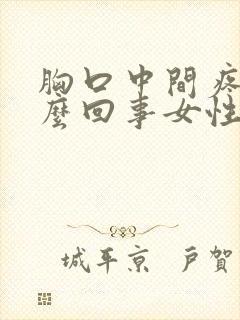 胸口中間疼
麼回事女性
城平京 戸賀